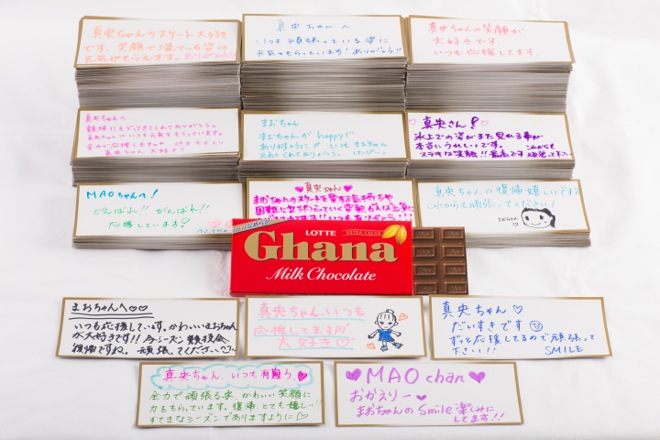 真央ちゃんのスケート大好き
です。笑顔で滑っている姿に
元気をもらえます。ありがとう
真央ちゃんへ
いつも頑張っている姿に
元気をもらっています！ありがとう!!
真央ちゃんの笑顔が
大好きです。
いつも応援してます。
真央ちゃんへ
競技にもどってきてくれてありがとう。
真央ちゃんにいつも元気をもらっています。
真央ちゃん大好き♡
まおちゃん
まおちゃんがhappyで
ありますように！いつもまおちゃん
真央さん！
氷上での姿がまた見れる事が
本当にうれしいです。
ステキな笑顔!!
MAOちゃんへ！
がんばれ!! がんばれ!!
応援しています！
♥真央ちゃん♥
まおちゃんのスケートを愛する気持ちや
真央ちゃんの復帰嬉しいです
これからも頑張ってください！
LOTTE
EXTRA CACAO
Ghana
Milk Chocolate
まおちゃんへ♡♡
いつも応援しています。かわいいまおちゃん
が大好きです!! 今シーズン競技会
復帰ですね。頑張ってください
真央ちゃん、いつも
応援してます
大好き♡
真央ちゃん♡
だいすきです
ずっと応援してるので頑張って
下さい!! SMILE
真央ちゃん、いつも有難う
全力で頑張る姿、かわいい笑顔に
力をもらっています。復帰とても嬉しい!!
すてきなシーズンでありますように♡
♥MAO chan♥
おかえりー♥
まおちゃんのSmile楽しみに
してます!!